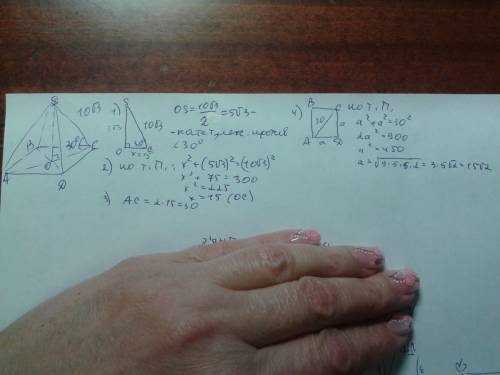 S
10√3
B
C
30°
O
A
D
1) S
5√3
10√3
30°
O
x=15
C
OS = 10√3/2 = 5√3 -
- катет, леж. против
∠30°
2) по т. П.: x² + (5√3)² = (10√3)²
x² + 75 = 300
x² = 225
x = 15 (OC)
3) AC = 2·15 = 30
4) B
C
30
a
A
a
D
по т. П.
a² + a² = 30²
2a² = 900
a² = 450
a = √3·5·5·2 = 3·5√2 = 15√2